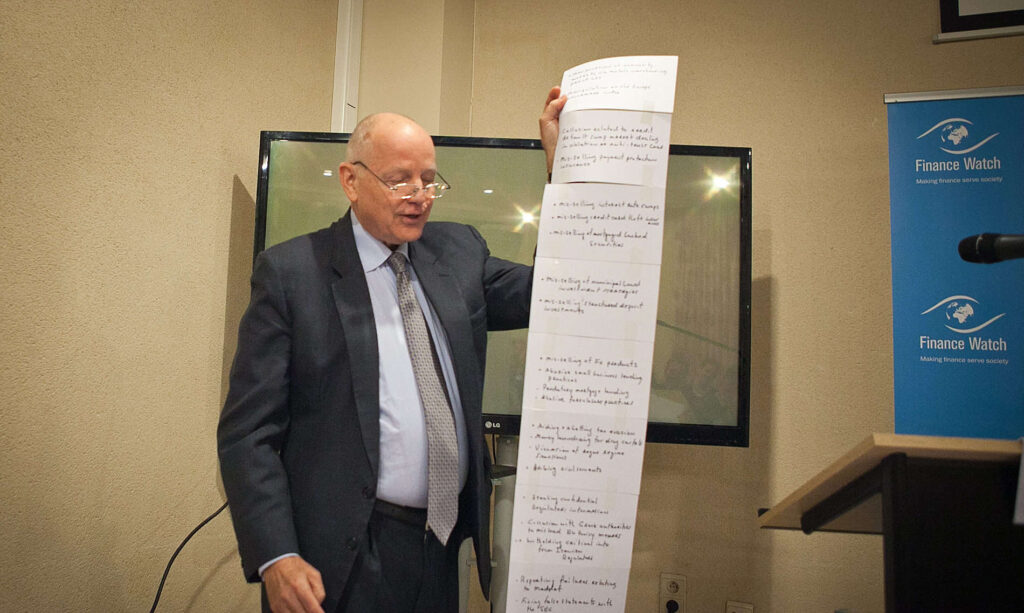 Collusion related to credit
default swap market dealing
in violation of anti-trust laws
mis-selling payment protection
insurance
• mis-selling interest rate swaps
• mis-selling credit card theft
• mis-selling of mortgaged backed
securities
• mis-selling of municipal bond
investment strategies
• mis-selling structured deposit
investments
• mis-selling of
products
• Abusive small business lending
practices
• Predatory mortgage lending
• Abusive foreclosure practices
• Aiding & abetting tax evasion
• Money laundering for drug cartels
• Violation of rogue regime
sanctions
•
• Stealing confidential
regulatory information
• Collusion with Greek authorities
to mislead EU
• Withholding critical info
from
Regulators
• Repeating
relating
to Madoff
• Filing false statements with
the SEC
LG
Finance Watch
Making finance serve society
Finance Watch
Making finance serve society